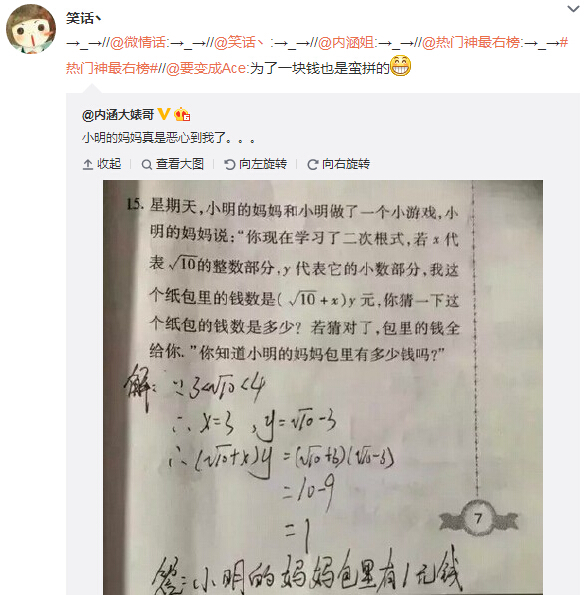 笑话丶
→_→//@微情话:→_→//@笑话丶:→_→//@内涵姐:→_→//@热门神最右榜:→_→#
热门神最右榜#//@要变成Ace:为了一块钱也是蛮拼的
@内涵大婊哥
小明的妈妈真是恶心到我了。。。
收起 查看大图 向左旋转 向右旋转
15. 星期天,小明的妈妈和小明做了一个小游戏,小
明的妈妈说:“你现在学习了二次根式,若 x 代
表 √10的整数部分,y 代表它的小数部分,我这
个纸包里的钱数是( √10 +x)y 元,你猜一下这
个纸包的钱数是多少? 若猜对了,包里的钱全
给你.”你知道小明的妈妈包里有多少钱吗?”
解: ∵3<√10<4
∴ x=3 , y=√10-3
∴(√10+x)y =(√10+3)(√10-3)
=10-9
=1
7
答:小明的妈妈包里有1元钱